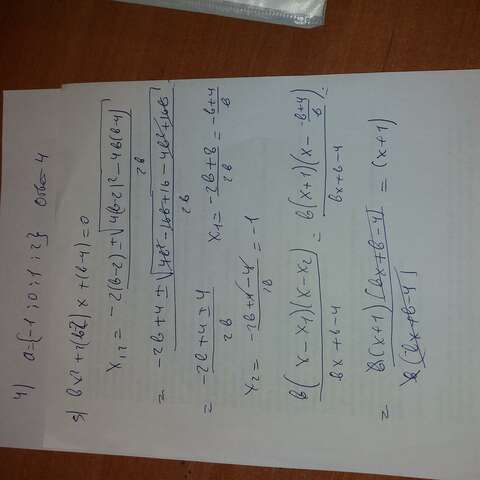 4) a={-1; 0; 1; 2} Ответ 4
5) bx²+2(b-2)x+(b-4)=0
x₁,₂ = (-2(b-2)±√(4(b-2)²-4b(b-4)))/2b
= (-2b+4±√(4b²-16b+16-4b²+16b))/2b
= (-2b+4±4)/2b x₁=(-2b+8)/2b=(-b+4)/b
x₂=(-2b+4-4)/2b=-1
b(x-x₁)(x-x₂)/(bx+b-4) = b(x+1)(x-(-b+4)/b)/(bx+b-4) =
= b(x+1)(bx+b-4)/b(bx+b-4) = (x+1)